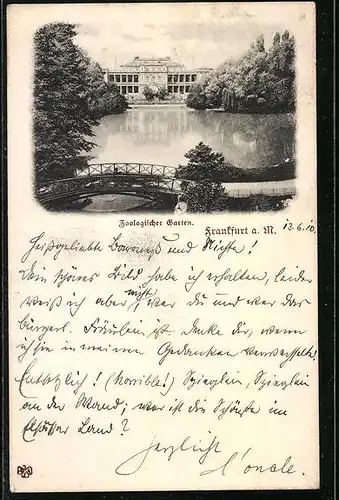 Zoologischer Garten.
Frankfurt a. M. 13.6.10.
Heißgeliebte und Nichte!
Dein schönes Bild habe ich erhalten, leider
weiß ich aber nicht, wer du und wer das
bürgerl. Fräulein ist. Denke dir, wenn
ich sie in meinen Gedanken verwechselte.
Entsetzlich! (horrible!) Spieglein, Spieglein
an der Wand, wer ist die Schönste im
Land?
Herzlichst
l'oncle.